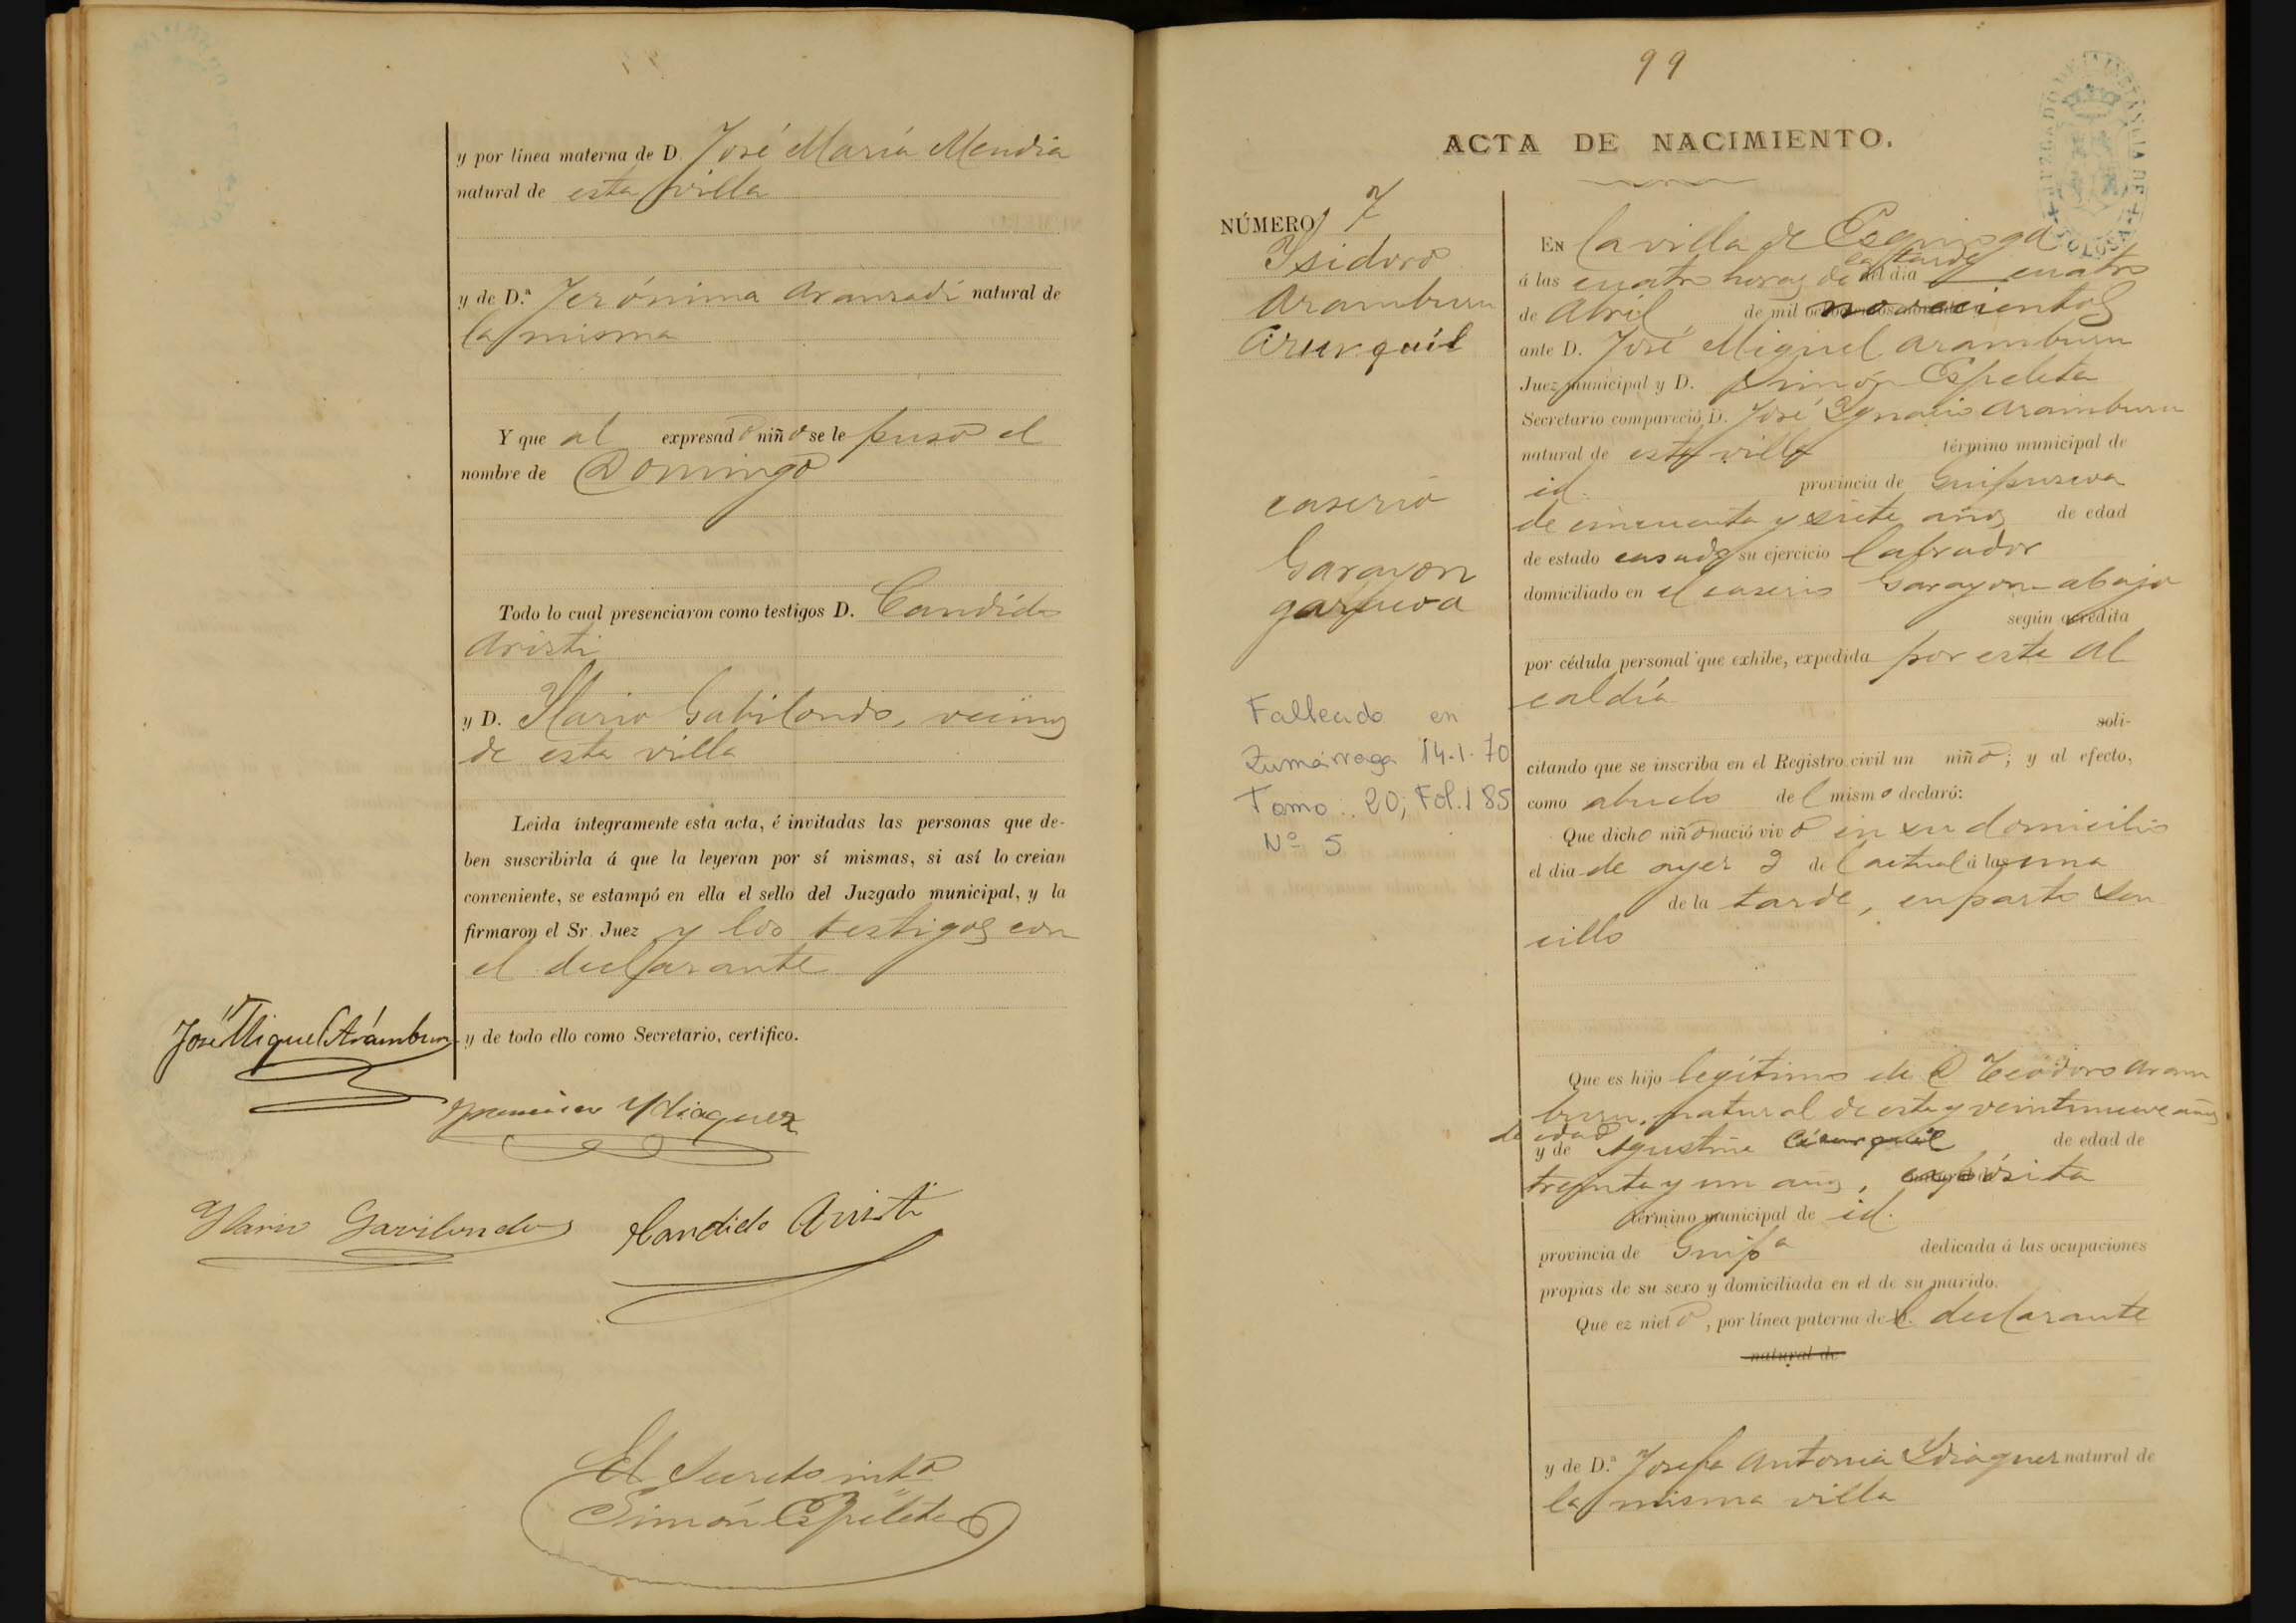 y por línea materna de D. José María Mendia
natural de esta villa
y de D.ª Jerónima Aranzadi natural de
la misma
Y que al expresado niño se le puso el
nombre de Domingo
Todo lo cual presenciaron como testigos D. Candido
Aristi
y D. Ylario Gabilondo, vecinos
de esta villa
Leida íntegramente esta acta, é invitadas las personas que de-
ben suscribirla á que la leyeran por sí mismas, si así lo creian
conveniente, se estampó en ella el sello del Juzgado municipal, y la
firmaron el Sr. Juez y los testigos con
el declarante
y de todo ello como Secretario, certifico.
José Miguel Aramburu
Francisco Ydiaquez
Ylario Gavilondo
Candido Aristi
El Secreto intº
Simón Espeleta
99
ACTA DE NACIMIENTO.
NÚMERO 7
Ysidoro
Aramburu
caserio
Garayon
garaicoa
Fallecido en
Zumárraga 14-1-70
Tomo: 20; Fol. 185
Nº 5
En la villa de Ezquioga
á las cuatro horas de la tarde del dia cuatro
de Abril de mil novecientos
ante D. José Miguel Aramburu
Juez municipal y D. Simón Espeleta
Secretario compareció D. José Ygnacio Aramburu
natural de esta villa término municipal de
id. provincia de Guipuzcoa
de cincuenta y siete años de edad
de estado casado su ejercicio labrador
domiciliado en el caserio Garayon abajo
según acredita
por cédula personal que exhibe, expedida por esta Al
caldía
soli-
citando que se inscriba en el Registro civil un niño; y al efecto,
como abuelo del mismo declaró:
Que dicho niño nació vivo en su domicilio
el dia de ayer 3 del actual á las una
de la tarde, en parto sen
cillo
Que es hijo legítimo de D Teodoro Aram
buru, natural de esta y veintinueve años
de edad
y de Agustina de edad de
treinta y un años, expósita
término municipal de id.
provincia de Guipª dedicada á las ocupaciones
propias de su sexo y domiciliada en el de su marido.
Que ez nieto, por línea paterna del declarante
natural de
y de D.ª Josefa Antonia Ydiaquez natural de
la misma villa